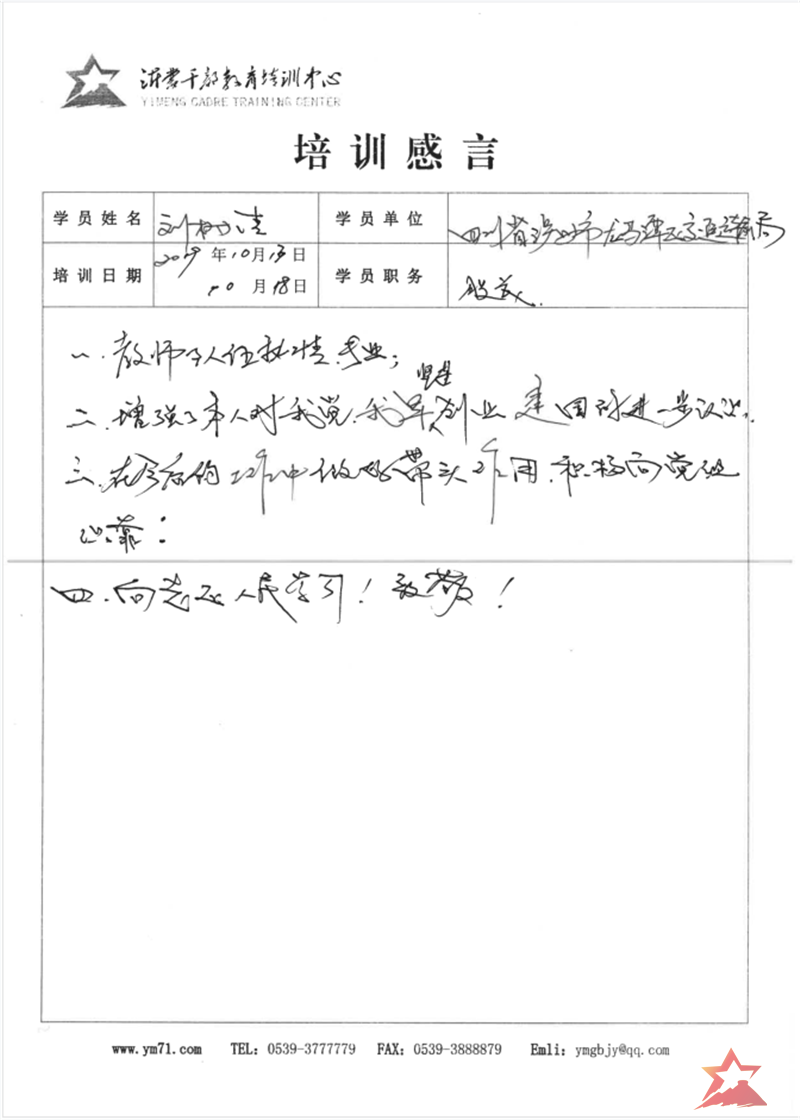 沂蒙干部教育培训中心
YIMENG CADRE TRAINING CENTER
培训感言
学员姓名 刘 洁 学员单位 四川省泸州市龙马潭区交通运输局
培训日期 2019年10月13日 学员职务 股长.
10月18日
一、教师个人任 热情、专业;
二、增强了本人对我党、我军创业 建国的进一步认识.
三、在今后的工作中做好带头作用,积极向党组
四、向 人民学习!致敬!
www.ym71.com TEL: 0539-3777779 FAX: 0539-3888879 Emli: ymgbjy@qq.com